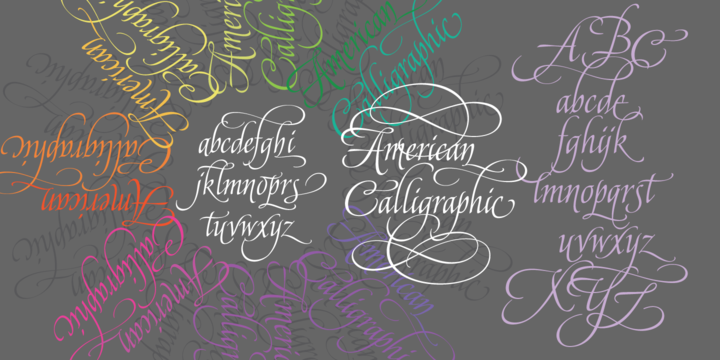 abcdefghi
jklmnopqrs
tuvwxyz
American
Calligraphic
ABC
abcde
fghijk
lmnopqrst
uvwxyz
XYZ
American
Calligraphic
American
Calligraphic
American
Calligraphic
American
Calligraphic
American
Calligraphic
American
Calligraphic
American
Calligraphic
American